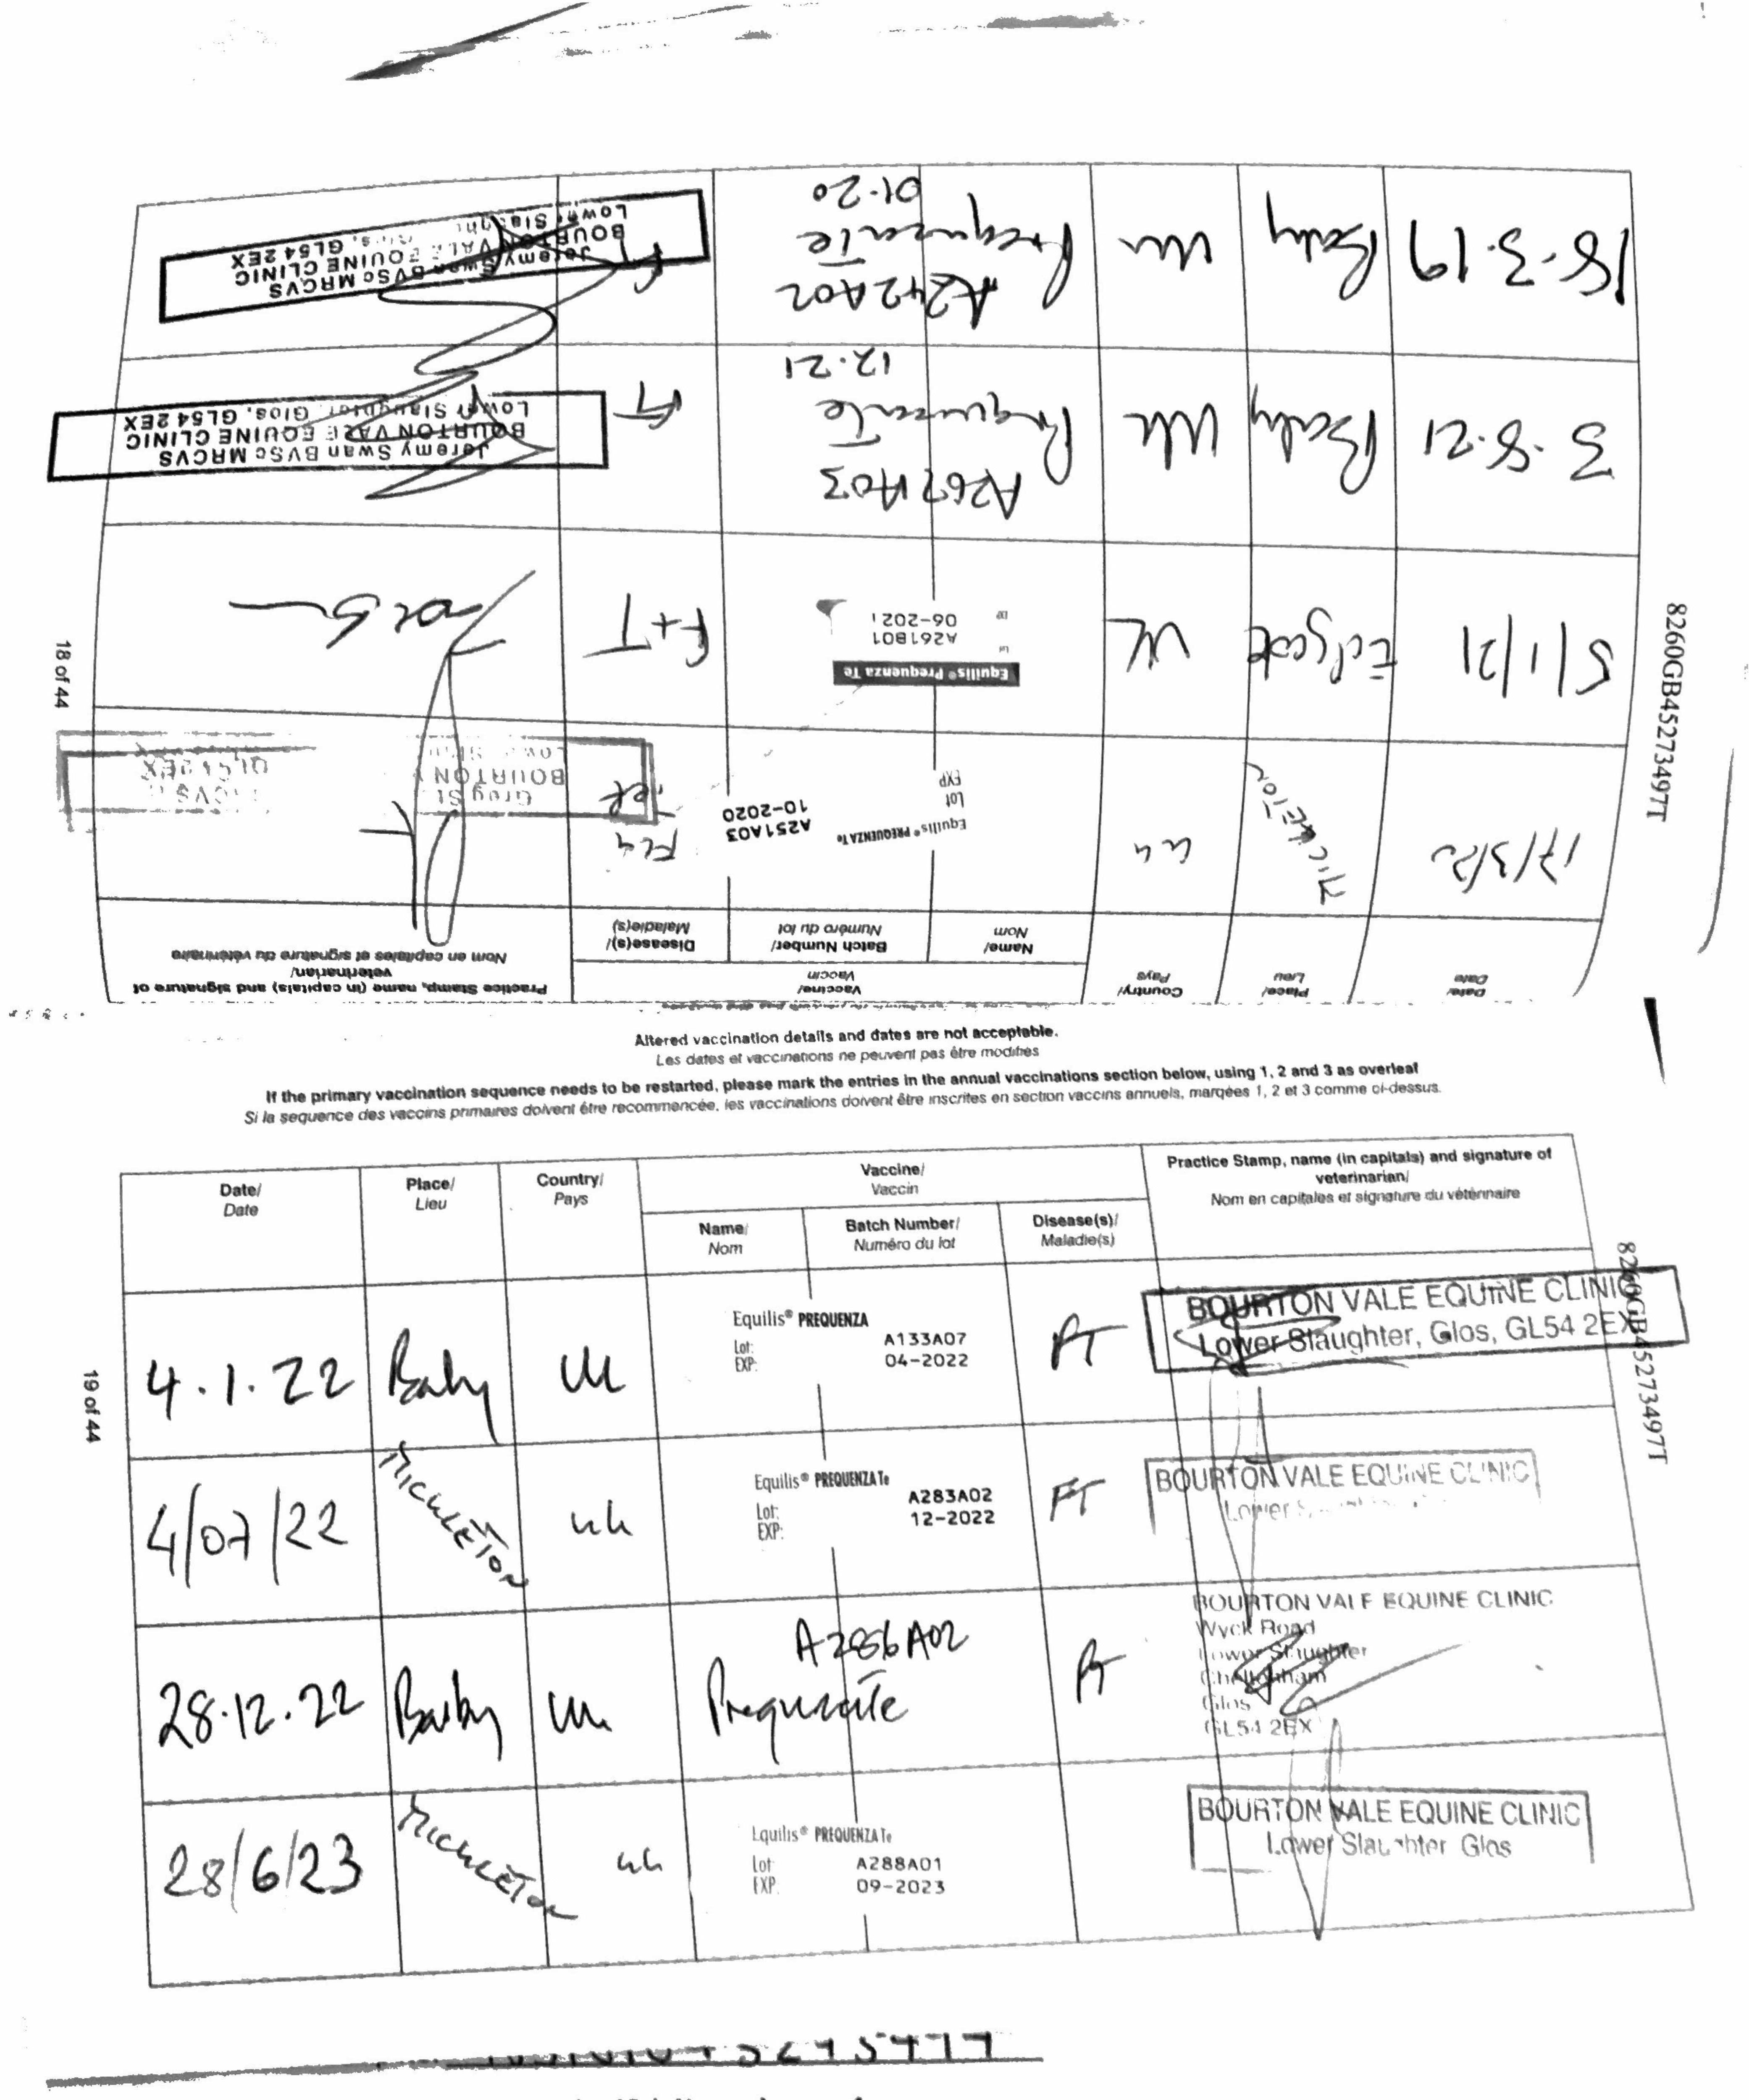 Date/
Date
Place/
Lieu
Country/
Pays
Vaccine/
Vaccin
Name/
Nom
Batch Number/
Numéro du lot
Disease(s)/
Maladie(s)
Practice Stamp, name (in capitals) and signature of
veterinarian/
Nom en capitales et signature du vétérinaire
17/3/20
MICKLETON
uk
Equilis® PREQUENZA Te
Lot
EXP
A251A03
10-2020
Greg St
BOURTON
GL54 2EX
5/1/21
UK
Equilis® Prequenza Te
Lot A261B01
EXP 06-2021
F+T
3.8.21
UK
A267A03
12.21
FT
Jeremy Swan BVSc MRCVS
BOURTON VALE EQUINE CLINIC
Lower Slaughter, Glos, GL54 2EX
18.3.19
A242A02
01.20
Jeremy Swan BVSc MRCVS
BOURTON VALE EQUINE CLINIC
Lower Slaughter, Glos, GL54 2EX
18 of 44
8260GB45273497T
Altered vaccination details and dates are not acceptable.
Les dates et vaccinations ne peuvent pas être modifiés
If the primary vaccination sequence needs to be restarted, please mark the entries in the annual vaccinations section below, using 1, 2 and 3 as overleaf
Si la sequence des vaccins primaires doivent être recommencée, les vaccinations doivent être inscrites en section vaccins annuels, marqées 1, 2 et 3 comme ci-dessus.
Date/
Date
Place/
Lieu
Country/
Pays
Vaccine/
Vaccin
Name/
Nom
Batch Number/
Numéro du lot
Disease(s)/
Maladie(s)
Practice Stamp, name (in capitals) and signature of
veterinarian/
Nom en capitales et signature du vétérinaire
4.1.22
UK
Equilis® PREQUENZA
Lot: A133A07
EXP: 04-2022
FT
BOURTON VALE EQUINE CLINIC
Lower Slaughter, Glos, GL54 2EX
4/07/22
MICKLETON
uk
Equilis® PREQUENZA Te
Lot: A283A02
EXP: 12-2022
FT
BOURTON VALE EQUINE CLINIC
Lower
28.12.22
UK
A286A02
FT
BOURTON VALE EQUINE CLINIC
Wyck Road
Lower Slaughter
Cheltenham
Glos
GL54 2EX
28/6/23
MICKLETON
uk
Equilis® PREQUENZA Te
Lot A288A01
EXP. 09-2023
BOURTON VALE EQUINE CLINIC
Lower Slaughter Glos
19 of 44
8260GB45273497T